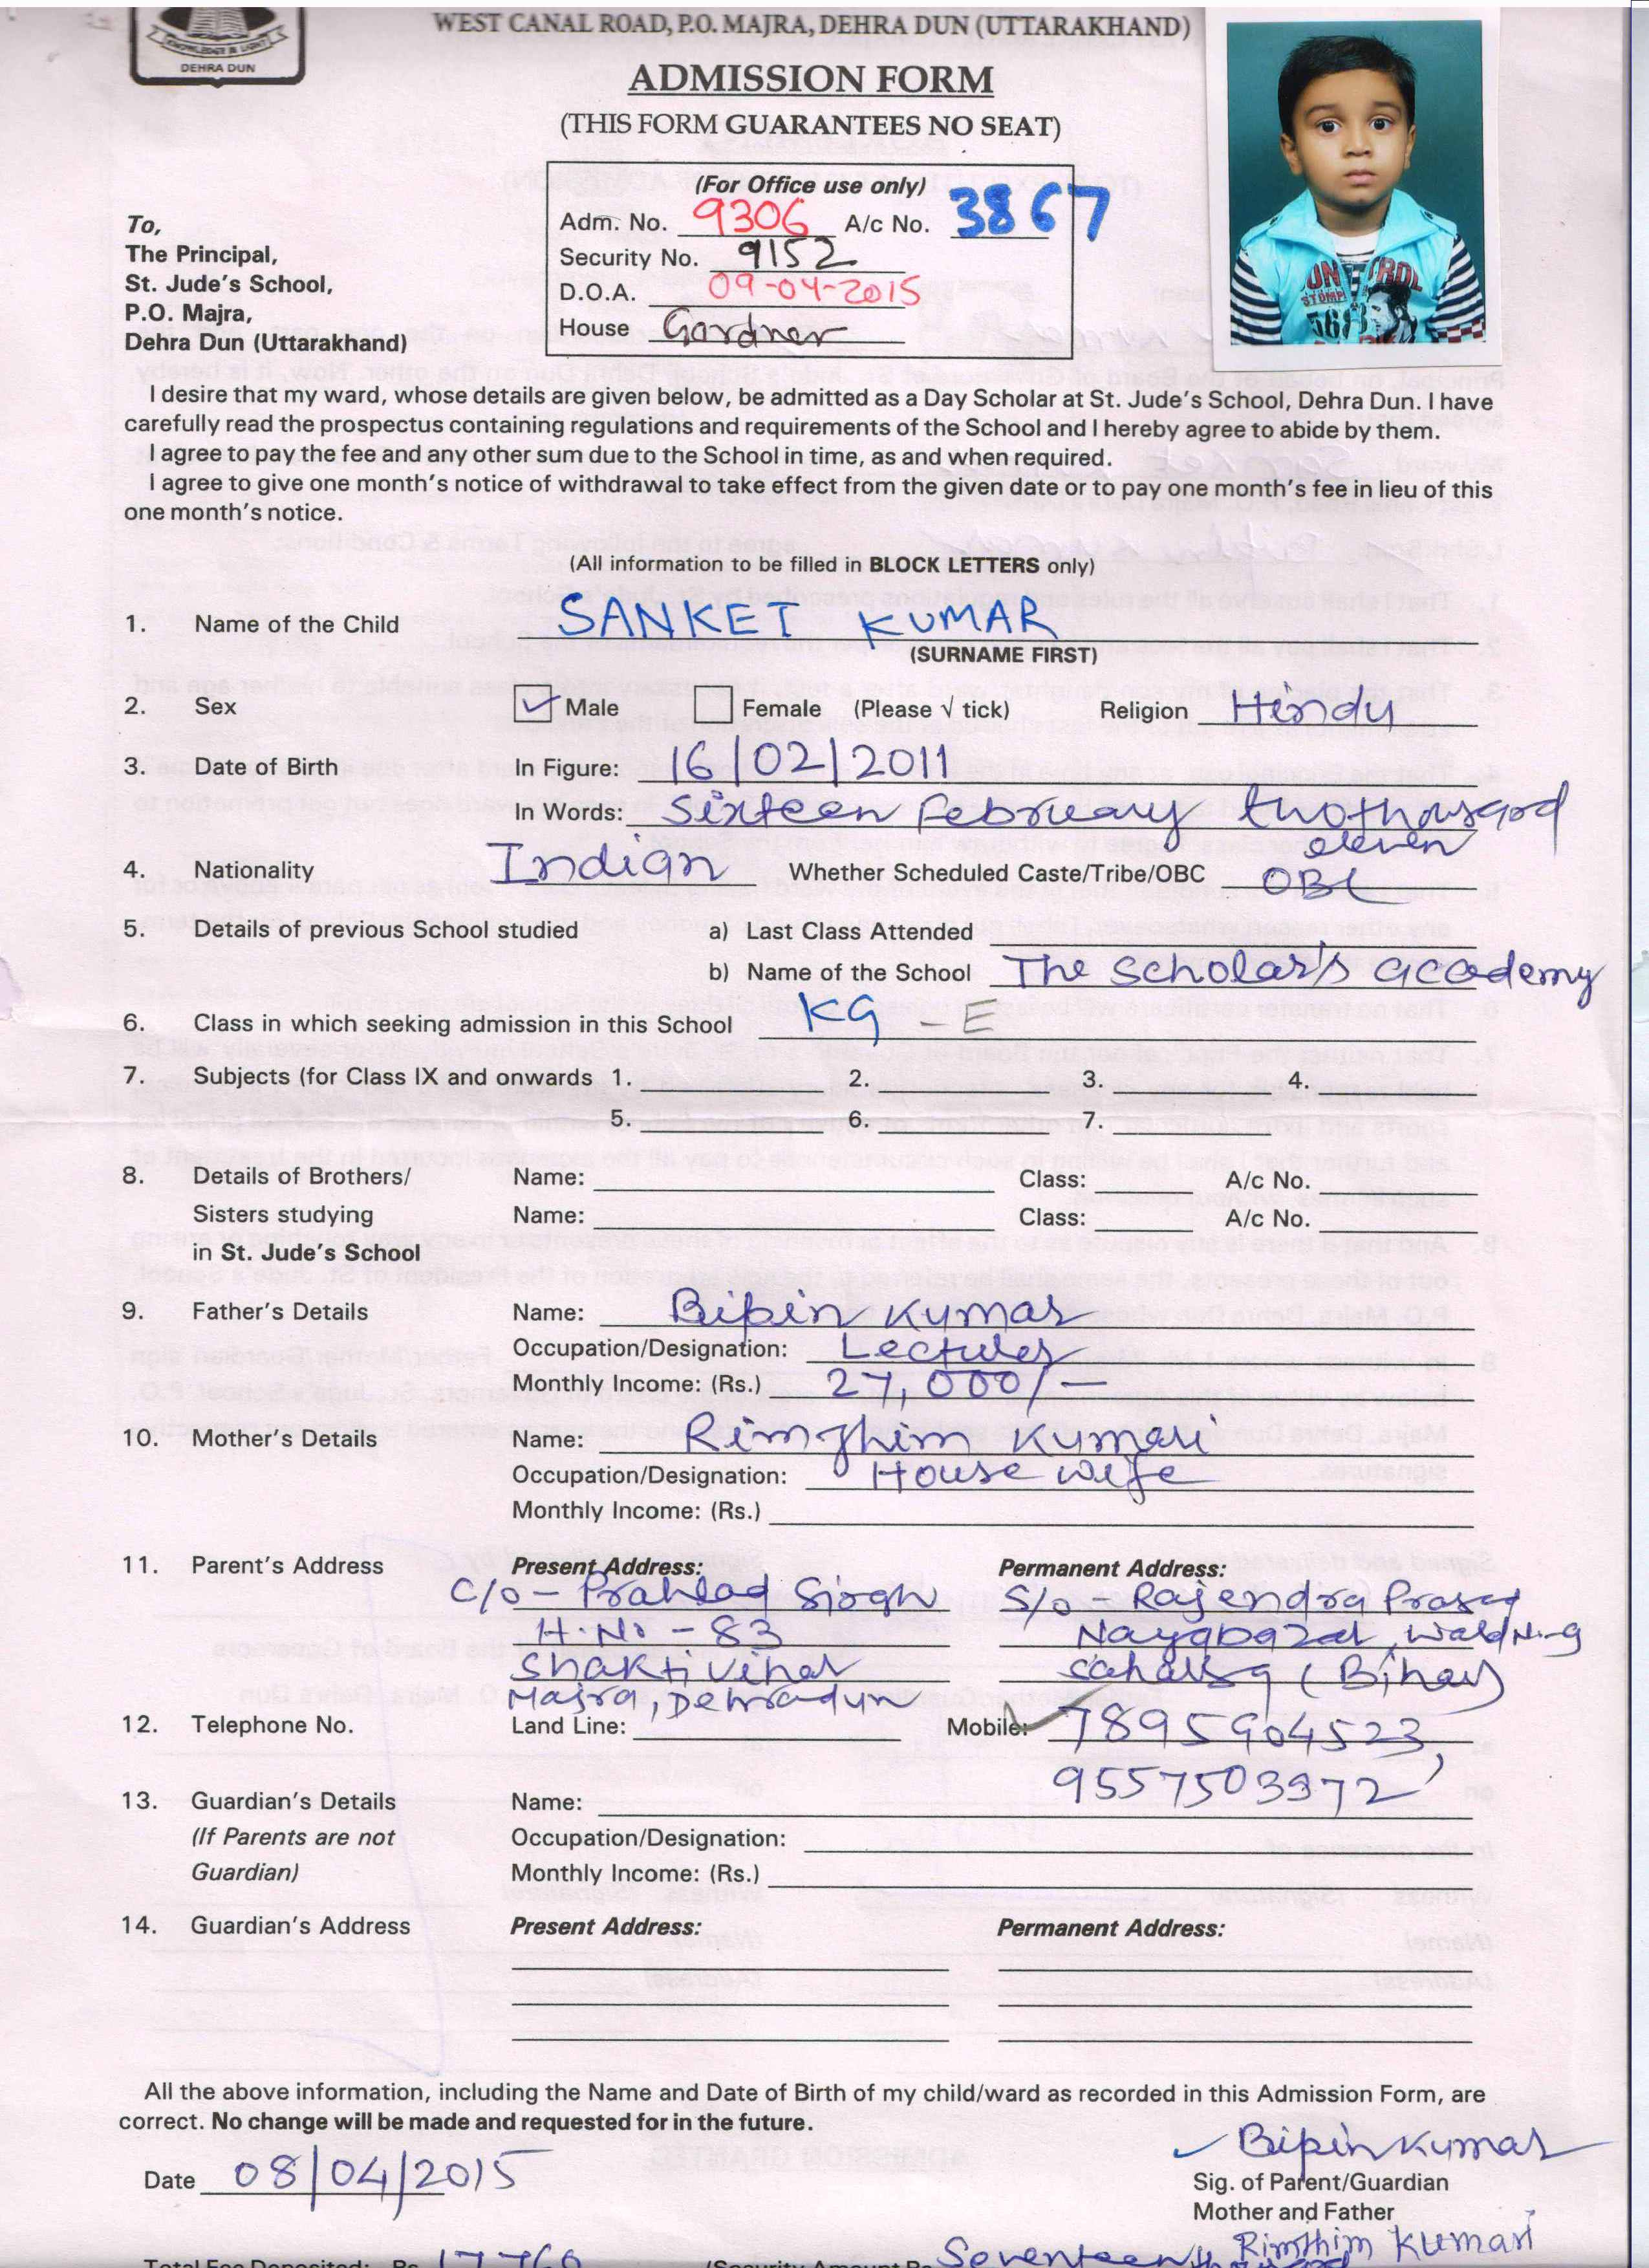 KNOWLEDGE IS LIGHT
DEHRA DUN
WEST CANAL ROAD, P.O. MAJRA, DEHRA DUN (UTTARAKHAND)
ADMISSION FORM
(THIS FORM GUARANTEES NO SEAT)
(For Office use only)
Adm. No. 9306 A/c No. 3867
Security No. 9152
D.O.A. 09-04-2015
House Gardner
To,
The Principal,
St. Jude's School,
P.O. Majra,
Dehra Dun (Uttarakhand)
I desire that my ward, whose details are given below, be admitted as a Day Scholar at St. Jude's School, Dehra Dun. I have
carefully read the prospectus containing regulations and requirements of the School and I hereby agree to abide by them.
I agree to pay the fee and any other sum due to the School in time, as and when required.
I agree to give one month's notice of withdrawal to take effect from the given date or to pay one month's fee in lieu of this
one month's notice.
(All information to be filled in BLOCK LETTERS only)
1. Name of the Child SANKET KUMAR
(SURNAME FIRST)
2. Sex ✓ Male Female (Please √ tick) Religion Hindu
3. Date of Birth In Figure: 16/02/2011
In Words: Sixteen February two thousand
eleven
4. Nationality Indian Whether Scheduled Caste/Tribe/OBC OBC
5. Details of previous School studied a) Last Class Attended
b) Name of the School The Scholar's academy
6. Class in which seeking admission in this School KG - E
7. Subjects (for Class IX and onwards 1. 2. 3. 4.
5. 6. 7.
8. Details of Brothers/ Name: Class: A/c No.
Sisters studying Name: Class: A/c No.
in St. Jude's School
9. Father's Details Name: Bipin Kumar
Occupation/Designation: Lecturer
Monthly Income: (Rs.) 27,000/-
10. Mother's Details Name: Rimjhim Kumari
Occupation/Designation: House wife
Monthly Income: (Rs.)
11. Parent's Address Present Address: Permanent Address:
C/o - Prahlad Singh S/o - Rajendra Prasad
H.No - 83 Nayabazar,
Shakti Vihar Saharsa (Bihar)
Majra, Dehradun
12. Telephone No. Land Line: Mobile: 7895904523,
9557503972
13. Guardian's Details Name:
(If Parents are not Occupation/Designation:
Guardian) Monthly Income: (Rs.)
14. Guardian's Address Present Address: Permanent Address:
All the above information, including the Name and Date of Birth of my child/ward as recorded in this Admission Form, are
correct. No change will be made and requested for in the future.
Bipin Kumar
Date 08/04/2015 Sig. of Parent/Guardian
Mother and Father
Rimjhim Kumari
Total Fee Deposited: Rs. 17760 Seventeen